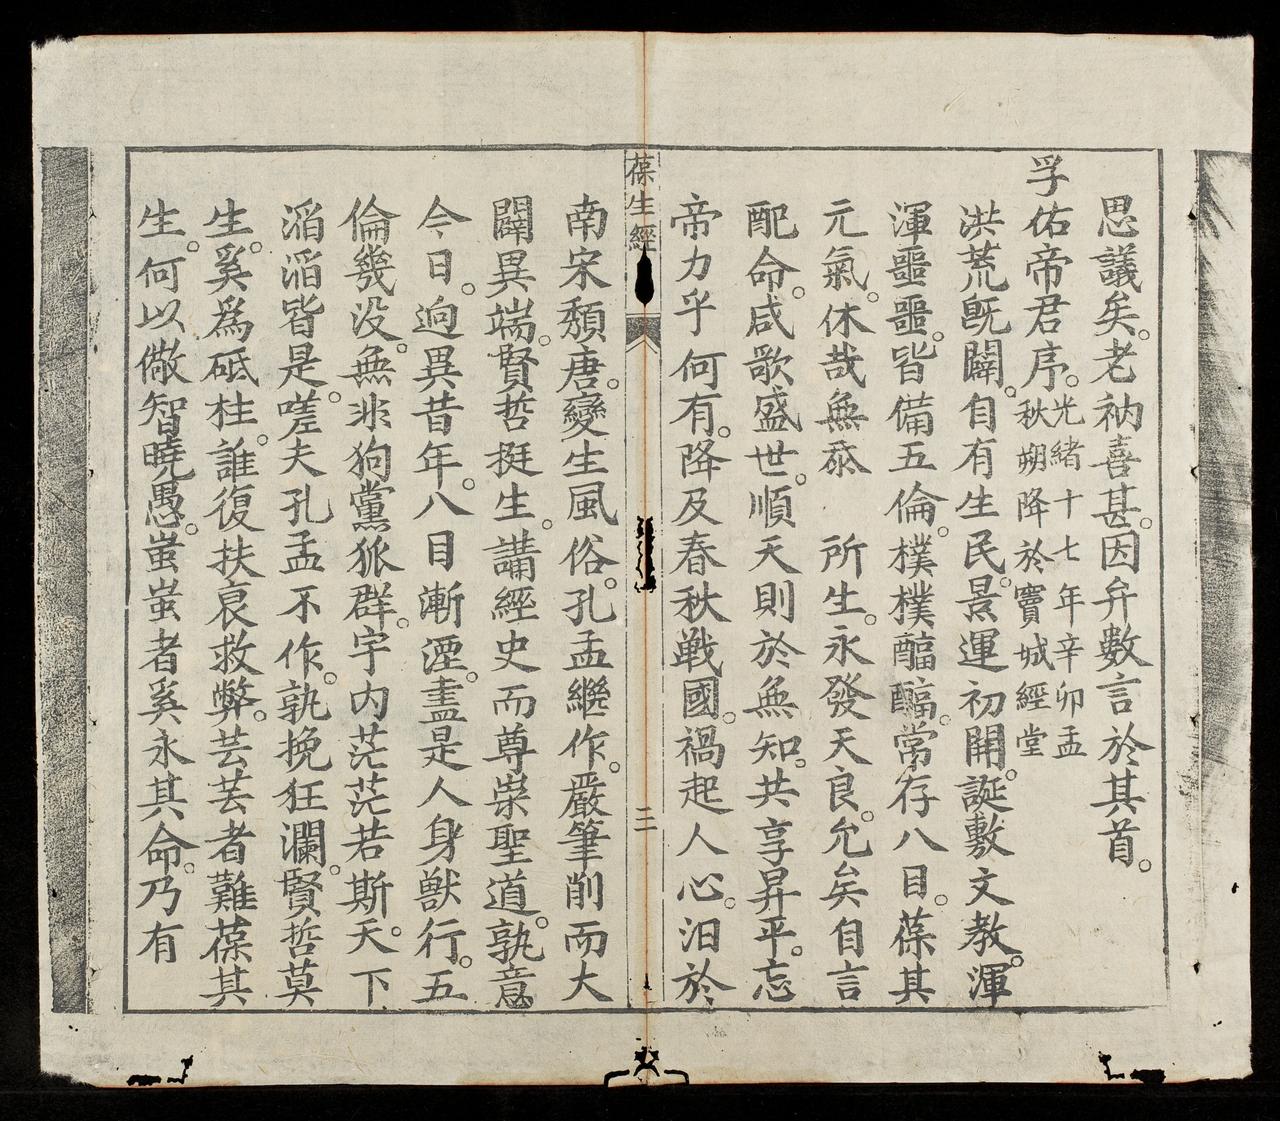 思議矣。老衲喜甚。因弁數言於其首。
孚佑帝君序。光緒十七年辛卯孟
秋朔降於竇城經堂
洪荒既闢。自有生民。景運初開。誕敷文教。渾
渾噩噩。皆備五倫。樸樸醽醽。常存八目。葆其
元氣。休哉無忝　所生。永發天良。允矣自言
配命。咸歌盛世。順天則於無知。共享昇平。忘
帝力乎何有。降及春秋戰國。禍起人心。汨於
葆生經
三
南宋頹唐。變生風俗。孔孟繼作。嚴筆削而大
闢異端。賢哲挺生。講經史而尊崇聖道。孰意
今日。逈異昔年。八目漸湮。盡是人身獸行。五
倫幾没。無非狗黨狐群。宇内茫茫若斯。天下
滔滔皆是。嗟夫孔孟不作。孰挽狂瀾。賢哲莫
生。奚為砥柱。誰復扶衰救弊。芸芸者難葆其
生。何以儆智曉愚。蚩蚩者奚永其命。乃有